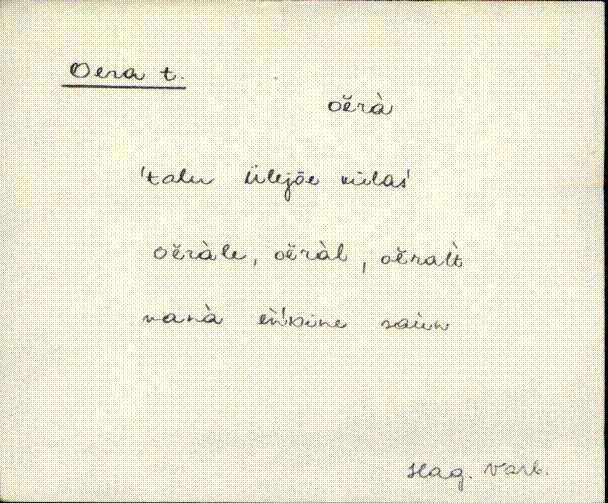 Oera t.
oĕrà
'talu Ülejõe külas'
oĕràle, oĕràl, oĕralt̀
vanà
saùn
Hag. Varb.